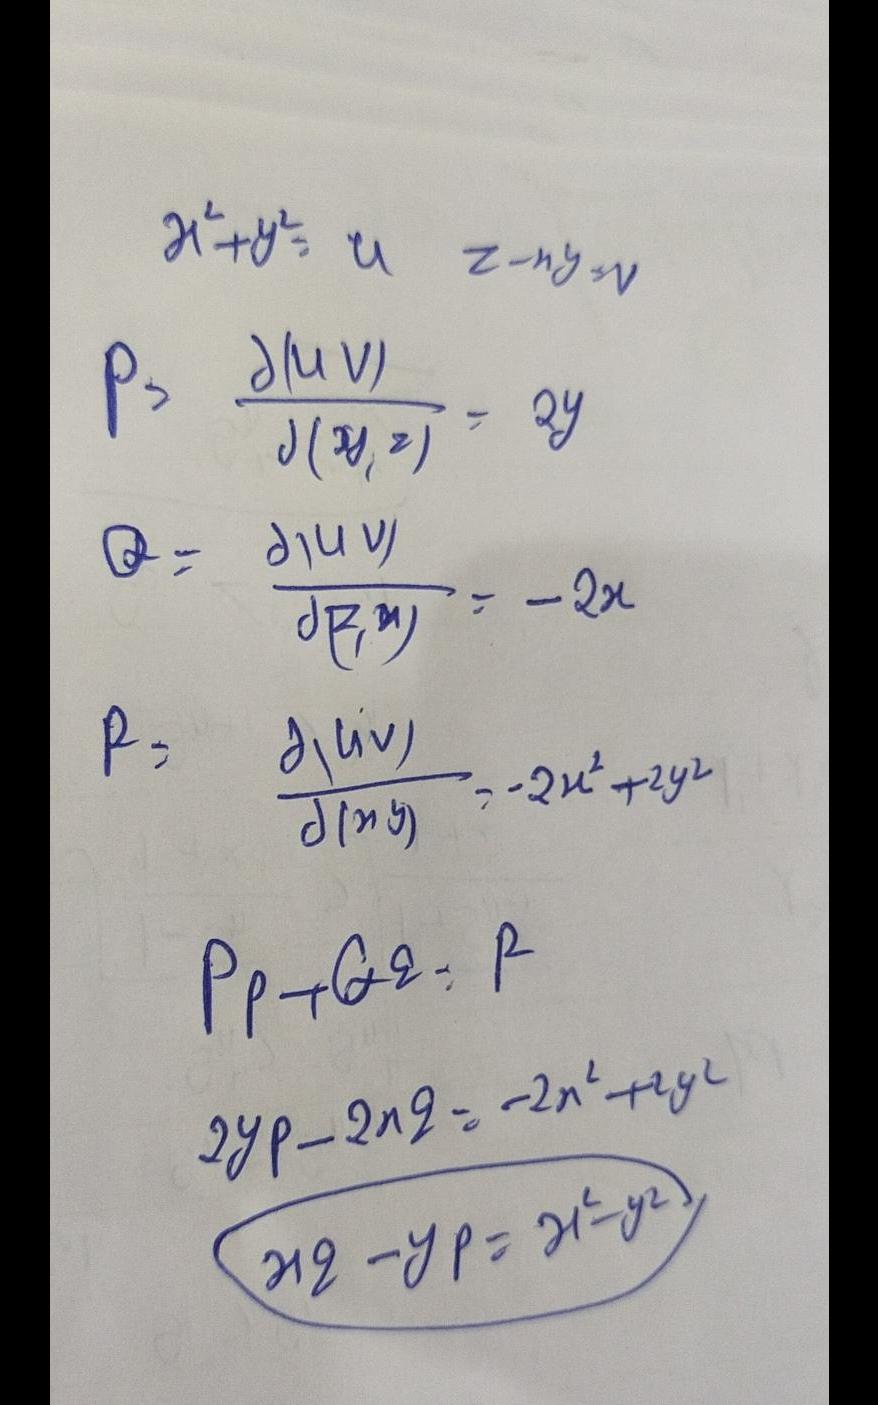 x²+y²= u z-xy=v
P= ∂(u v)/∂(y,z) = 2y
Q= ∂(u v)/∂(z,x) = -2x
R= ∂(u v)/∂(x y) = -2x²+2y²
Pp+Qq= R
2yp-2xq= -2x²+2y²
xq -yp= x²-y²